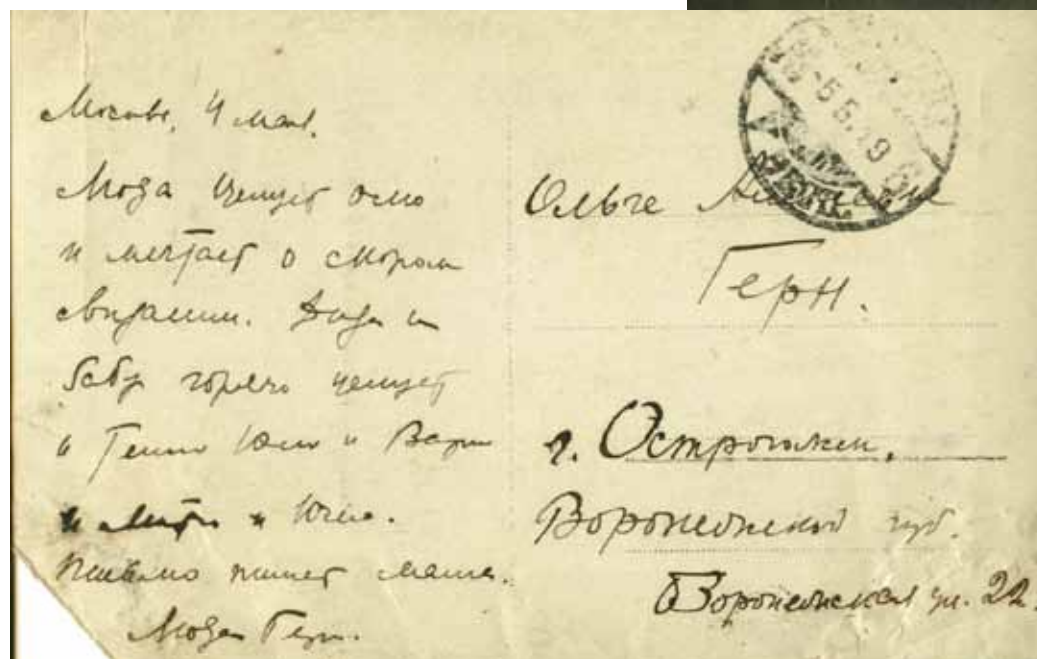 Москва, 4 мая.
Мода целует Олю
и мечтает о скором
свидании. Дида и
баба горячо целует
и Геню Юлю и Варю
и Митю и Юлю.
Письмо пишет мама.
Мода Герн.
Ольге
Герн.
г. Острогожск,
Воронежской губ.
Воронежская ул. 22.
-5.5.19